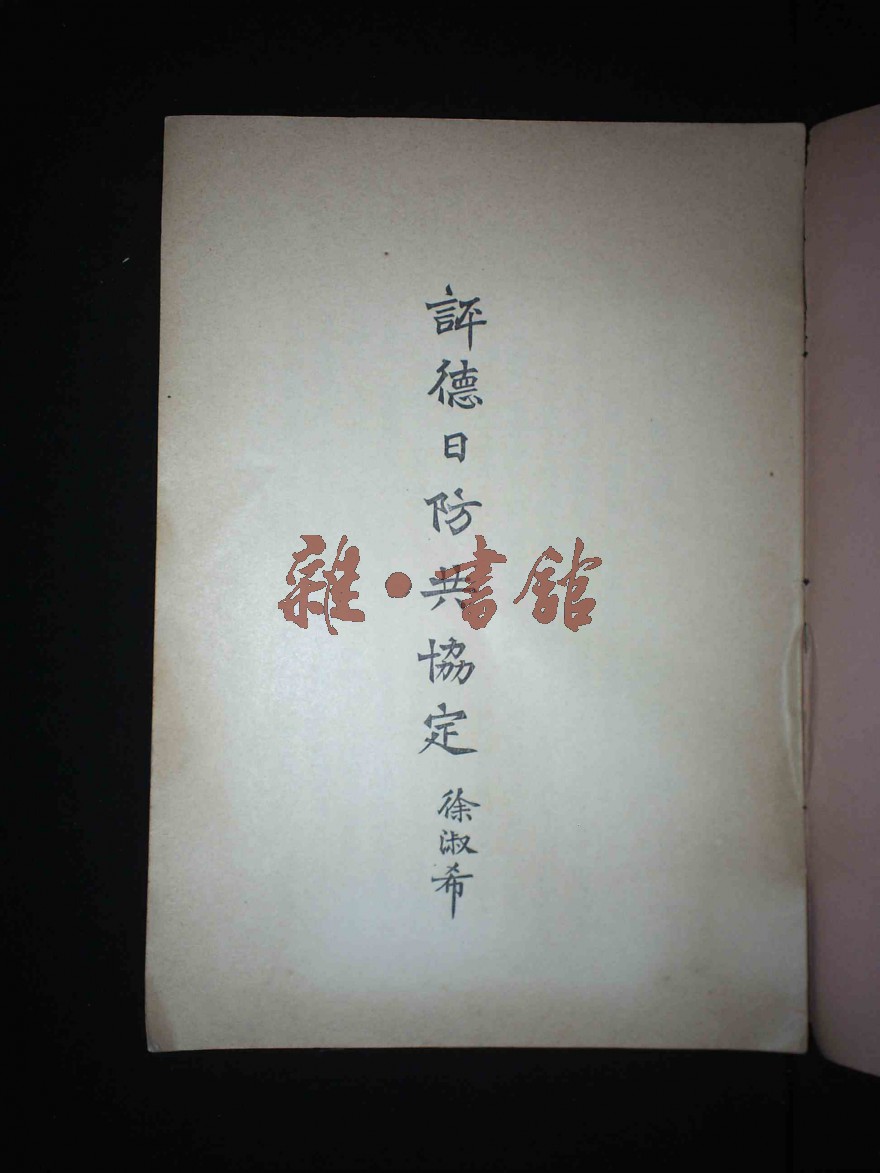 評德日防共協定
徐淑希
雜·書館